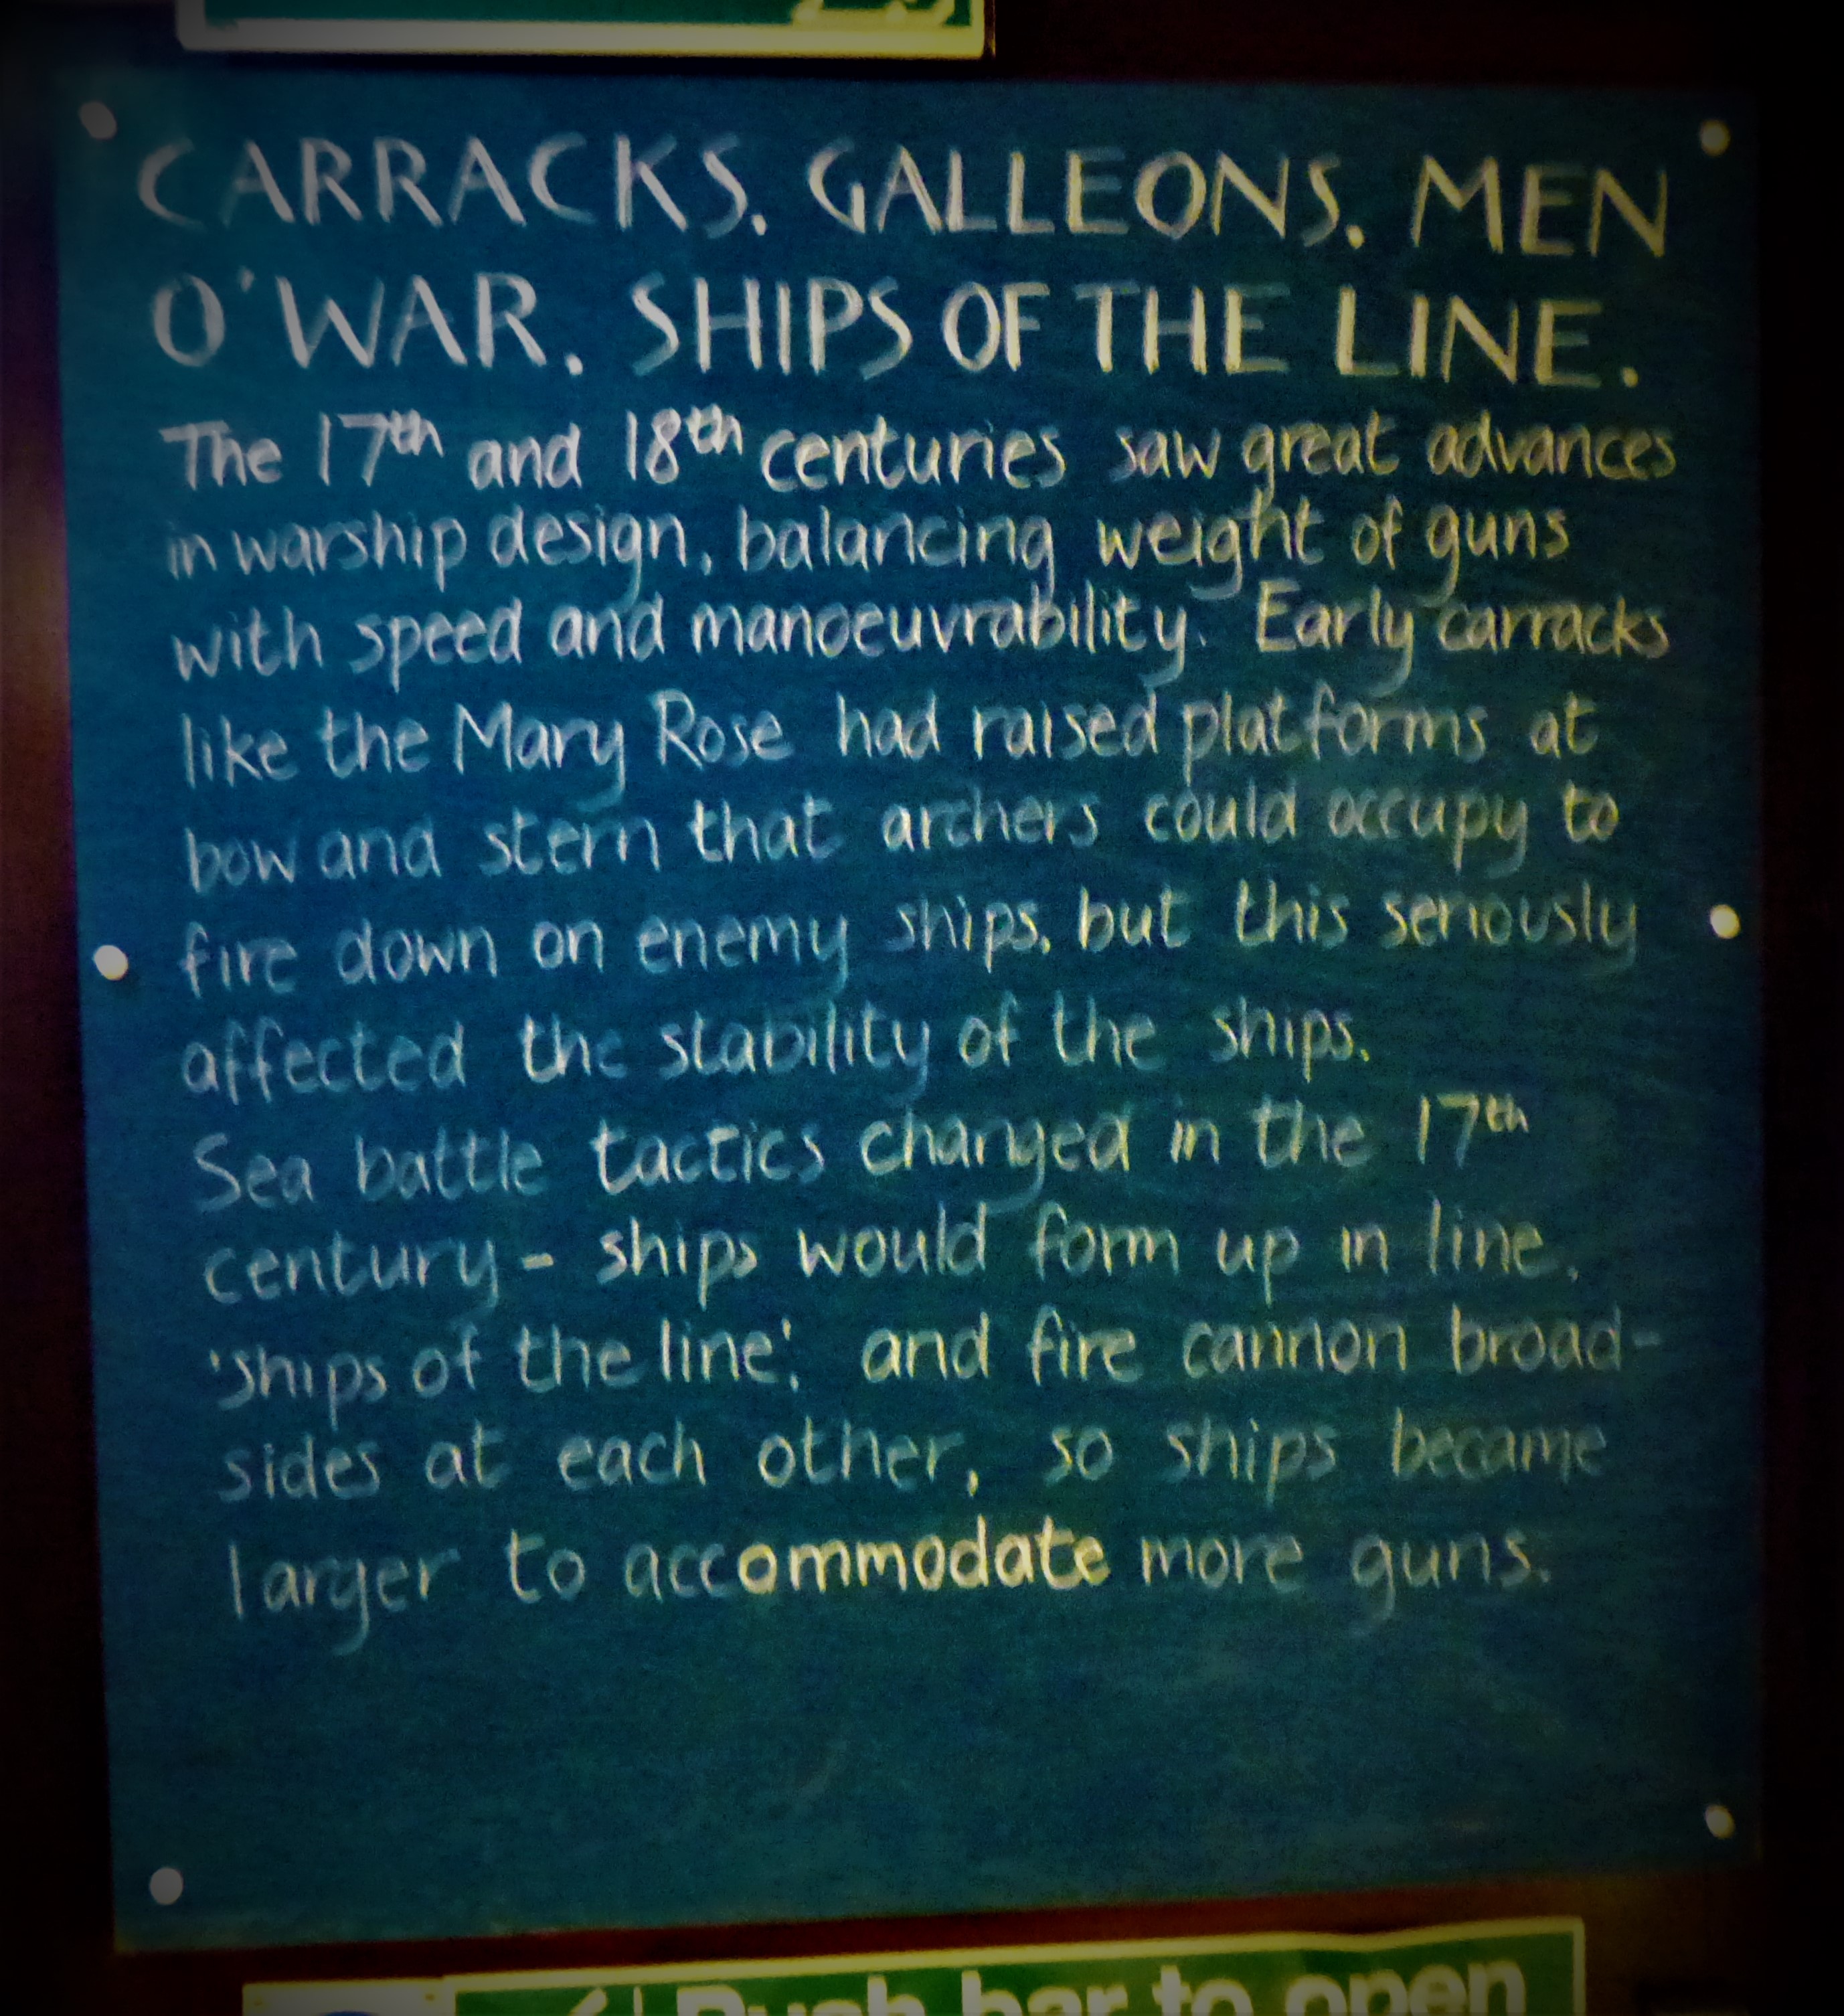 CARRACKS. GALLEONS. MEN
O'WAR. SHIPS OF THE LINE.
The 17th and 18th centuries saw great advances
in warship design, balancing weight of guns
with speed and manoeuvrability. Early carracks
like the Mary Rose had raised platforms at
bow and stern that archers could occupy to
fire down on enemy ships, but this seriously
affected the stability of the ships.
Sea battle tactics changed in the 17th
century - ships would form up in line,
'ships of the line', and fire cannon broad-
sides at each other, so ships became
larger to accommodate more guns.
Push bar to open